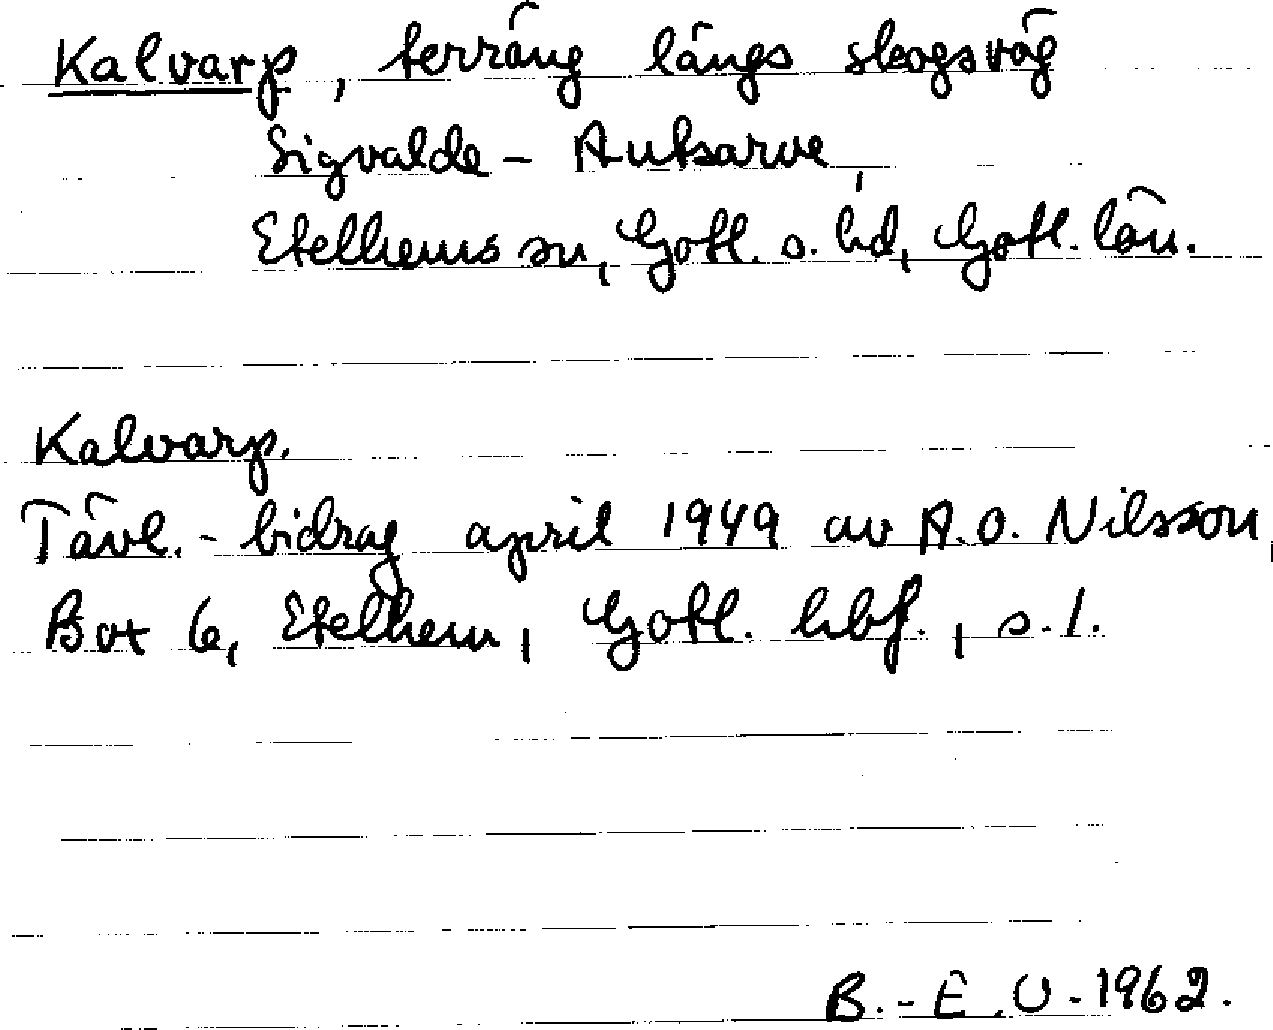 Kalvarp, terräng längs skogsväg
Sigvalde - Autsarve,
Etelhems sn, Gotl. s. hd, Gotl. län.
Kalvarp.
Tävl.-bidrag april 1949 av A.O. Nilsson,
Box 6, Etelhem, Gotl. hbf., s.1.
B.-E.U-1962.